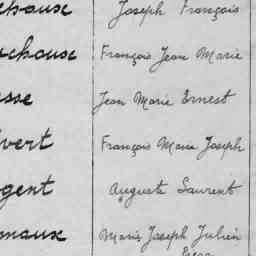 Joseph François
François Jean Marie
Jean Marie Ernest
vert François Marie Joseph
gent Auguste Laurent
naux Marie Joseph Julien